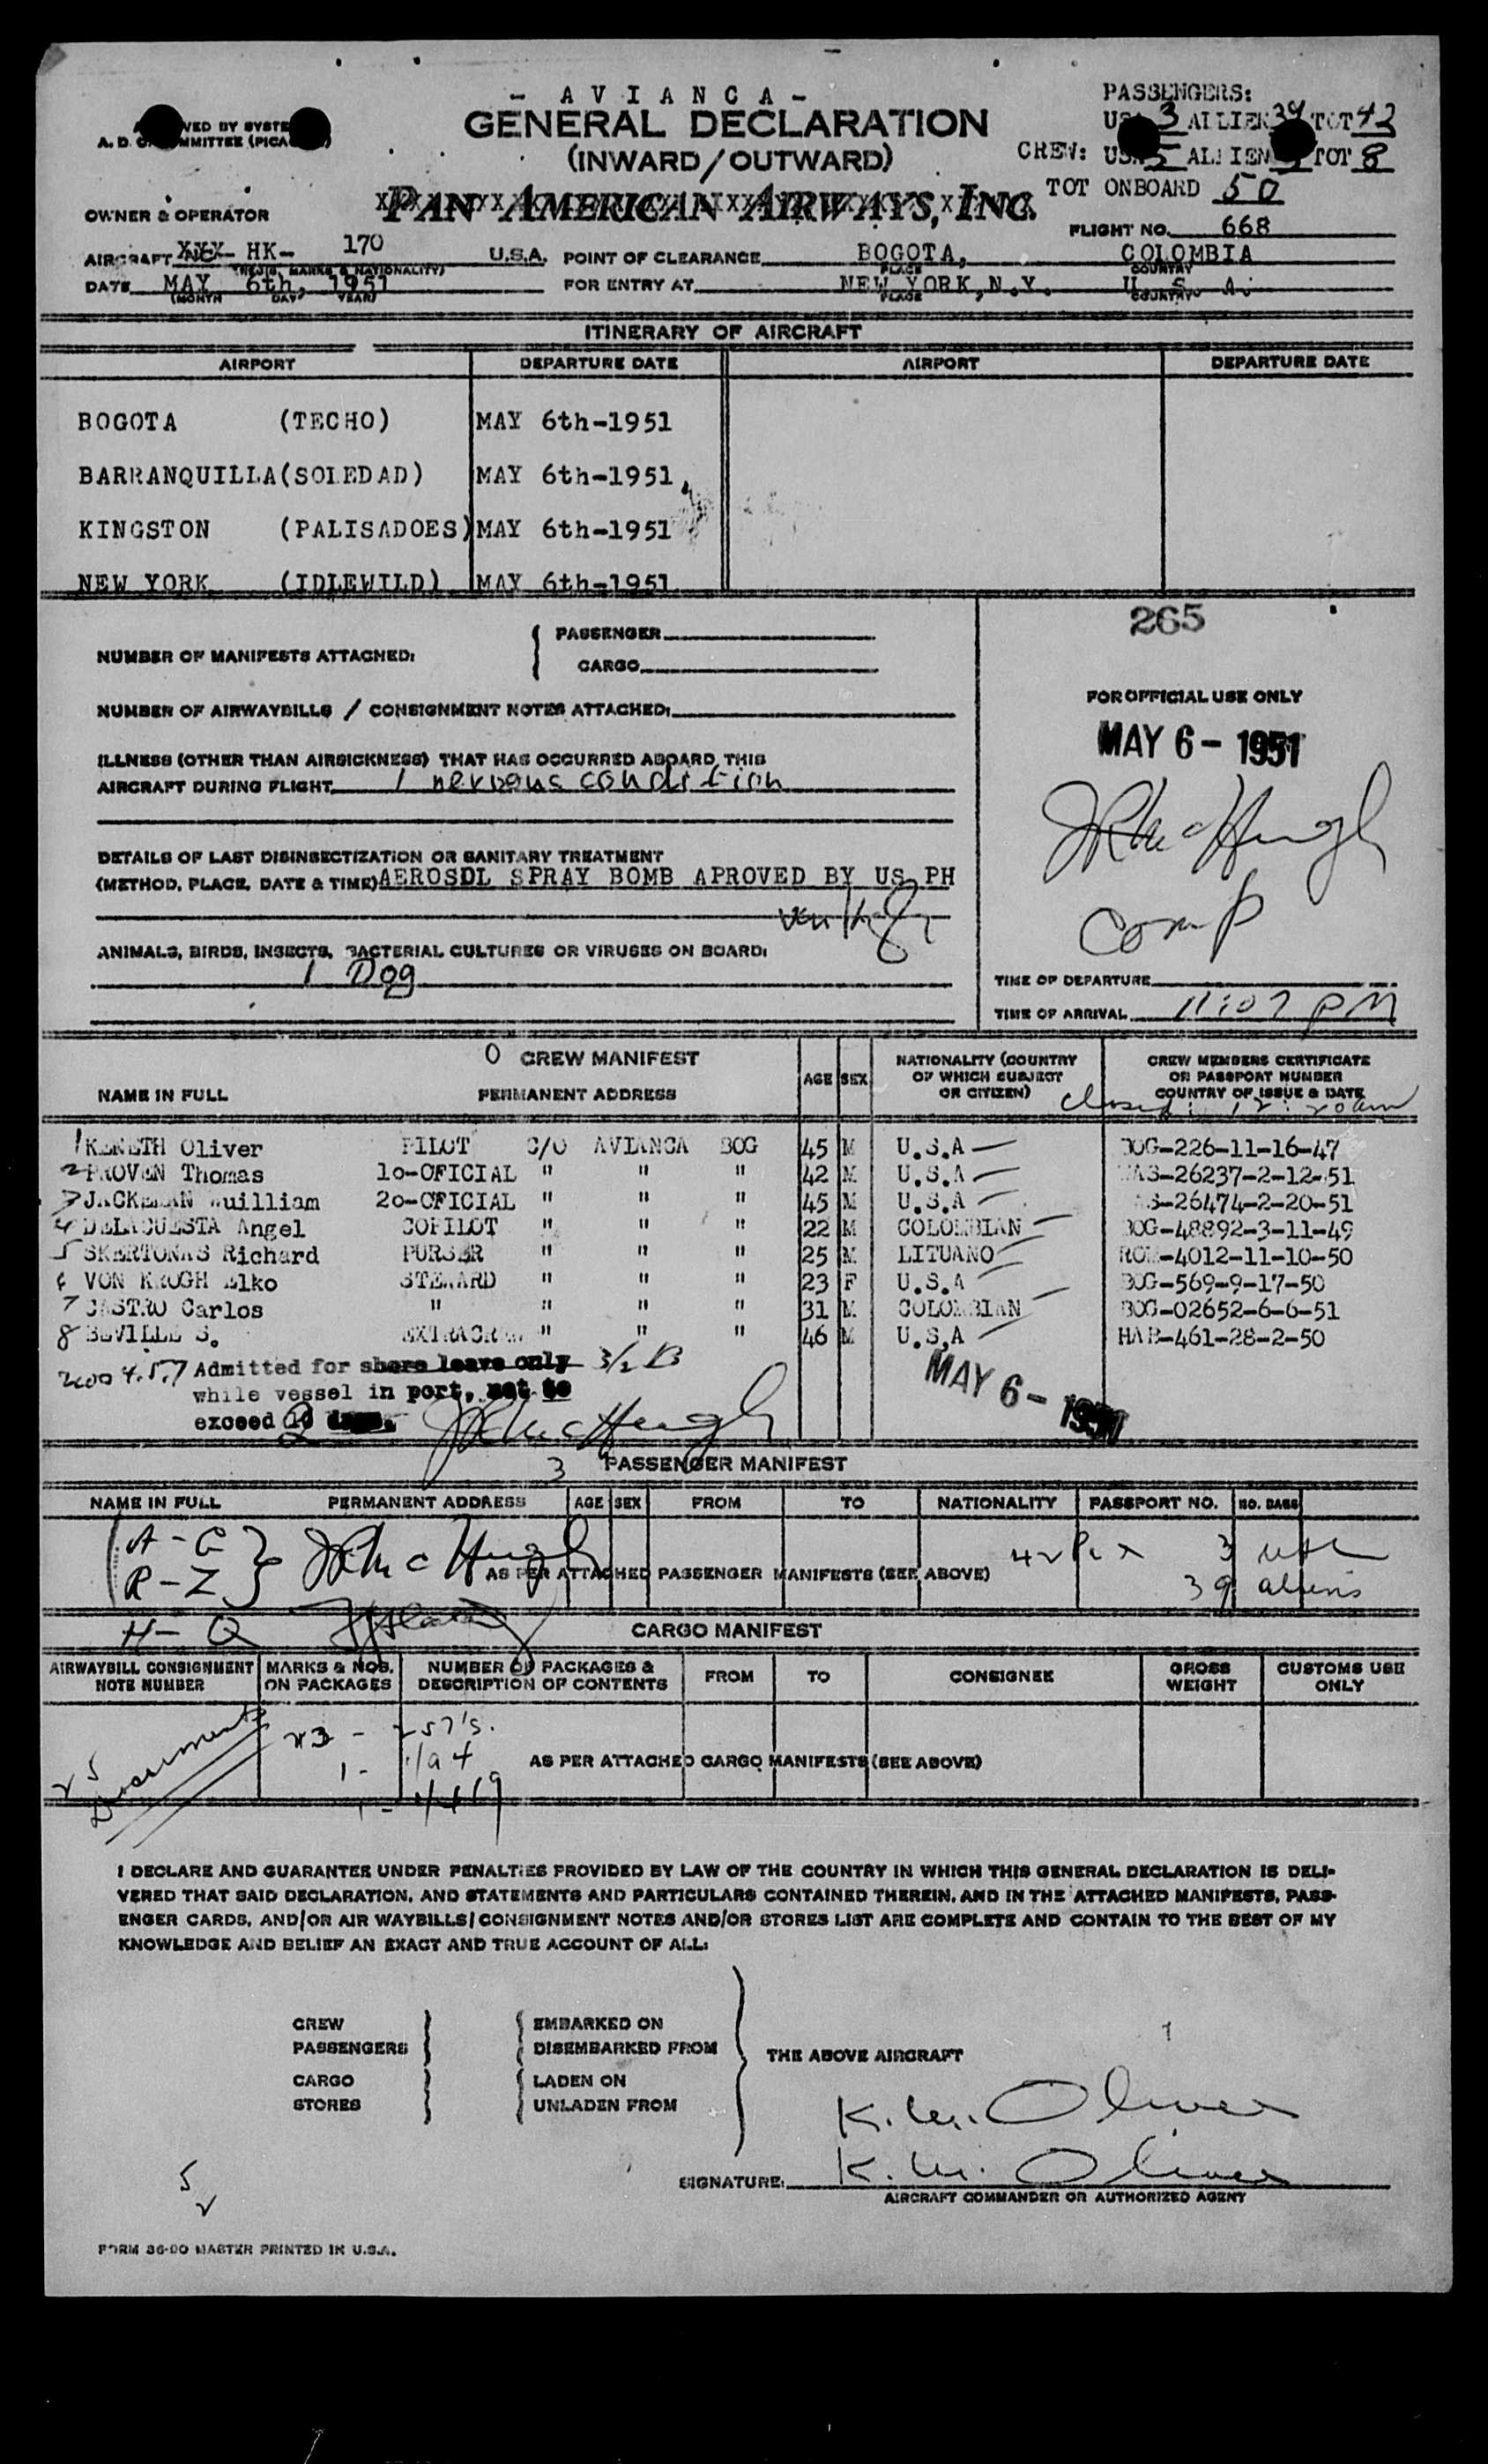 - A V I A N C A -
GENERAL DECLARATION
(INWARD/OUTWARD)
PAN AMERICAN AIRWAYS, INC.
VED BY SYSTE
A. D. C. MMITTEE (PICA
PASSENGERS:
US 3 ALLIEN 39 TOT 42
CREW: USA 5 ALLIEN 3 TOT 8
TOT ONBOARD 50
OWNER & OPERATOR
FLIGHT NO. 668
AIRCRAFT XXX NC- HK- 170 U.S.A. POINT OF CLEARANCE BOGOTA, COLOMBIA
(REGIS. MARKS & NATIONALITY) PLACE COUNTRY
DATE MAY 6th, 1951 FOR ENTRY AT NEW YORK,N.Y. U. S. A.
(MONTH DAY YEAR) PLACE COUNTRY
ITINERARY OF AIRCRAFT
AIRPORT DEPARTURE DATE AIRPORT DEPARTURE DATE
BOGOTA (TECHO) MAY 6th-1951
BARRANQUILLA(SOLEDAD) MAY 6th-1951
KINGSTON (PALISADOES) MAY 6th-1951
NEW YORK (IDLEWILD) MAY 6th-1951
265
NUMBER OF MANIFESTS ATTACHED: PASSENGER
CARGO
FOR OFFICIAL USE ONLY
NUMBER OF AIRWAYBILLS / CONSIGNMENT NOTES ATTACHED:
MAY 6 - 1951
ILLNESS (OTHER THAN AIRSICKNESS) THAT HAS OCCURRED ABOARD THIS
AIRCRAFT DURING FLIGHT 1 nervous condition
JRMcHugh
DETAILS OF LAST DISINSECTIZATION OR SANITARY TREATMENT
(METHOD, PLACE, DATE & TIME) AEROSDL SPRAY BOMB APROVED BY US PH
comp
ANIMALS, BIRDS, INSECTS, BACTERIAL CULTURES OR VIRUSES ON BOARD:
1 Dog
TIME OF DEPARTURE
TIME OF ARRIVAL 11:07 PM
0 CREW MANIFEST
NAME IN FULL PERMANENT ADDRESS AGE SEX NATIONALITY (COUNTRY OF WHICH SUBJECT OR CITIZEN) CREW MEMBERS CERTIFICATE OR PASSPORT NUMBER COUNTRY OF ISSUE & DATE
closed: 12:20am
1 KENETH Oliver PILOT C/O AVIANCA BOG 45 M U.S.A BOG-226-11-16-47
2 PROVEN Thomas 1o-OFICIAL " " " 42 M U.S.A WAS-26237-2-12-51
3 JACKEMAN Wuilliam 2o-OFICIAL " " " 45 M U.S.A S-26474-2-20-51
4 DELACUESTA Angel COPILOT " " " 22 M COLOMBIAN BOG-48892-3-11-49
5 SKERTONAS Richard PURSER " " " 25 M LITUANO ROM-4012-11-10-50
6 VON KROGH Elko STEWARD " " " 23 F U.S.A BOG-569-9-17-50
7 CASTRO Carlos " " " " 31 M COLOMBIAN BOG-02652-6-6-51
8 BEVILLE S. EXTRACREW " " " 46 M U.S.A HAB-461-28-2-50
Admitted for shore leave only
while vessel in port, not to
exceed 10 days.
JRMcHugh
MAY 6 - 1951
3 PASSENGER MANIFEST
NAME IN FULL PERMANENT ADDRESS AGE SEX FROM TO NATIONALITY PASSPORT NO. NO. BAGS
A - G
R - Z
JRMcHugh
AS PER ATTACHED PASSENGER MANIFESTS (SEE ABOVE)
42 3
39 aliens
H - Q
CARGO MANIFEST
AIRWAYBILL CONSIGNMENT NOTE NUMBER MARKS & NOS. ON PACKAGES NUMBER OF PACKAGES & DESCRIPTION OF CONTENTS FROM TO CONSIGNEE GROSS WEIGHT CUSTOMS USE ONLY
25 Documents
23 - 257's.
1 -
AS PER ATTACHED CARGO MANIFESTS (SEE ABOVE)
I DECLARE AND GUARANTEE UNDER PENALTIES PROVIDED BY LAW OF THE COUNTRY IN WHICH THIS GENERAL DECLARATION IS DELI-
VERED THAT SAID DECLARATION, AND STATEMENTS AND PARTICULARS CONTAINED THEREIN, AND IN THE ATTACHED MANIFESTS, PASS-
ENGER CARDS, AND/OR AIR WAYBILLS/CONSIGNMENT NOTES AND/OR STORES LIST ARE COMPLETE AND CONTAIN TO THE BEST OF MY
KNOWLEDGE AND BELIEF AN EXACT AND TRUE ACCOUNT OF ALL:
CREW EMBARKED ON
PASSENGERS DISEMBARKED FROM
THE ABOVE AIRCRAFT
CARGO LADEN ON
STORES UNLADEN FROM
K.M. Oliver
SIGNATURE: K.M. Oliver
AIRCRAFT COMMANDER OR AUTHORIZED AGENT
FORM 36-00 MASTER PRINTED IN U.S.A.